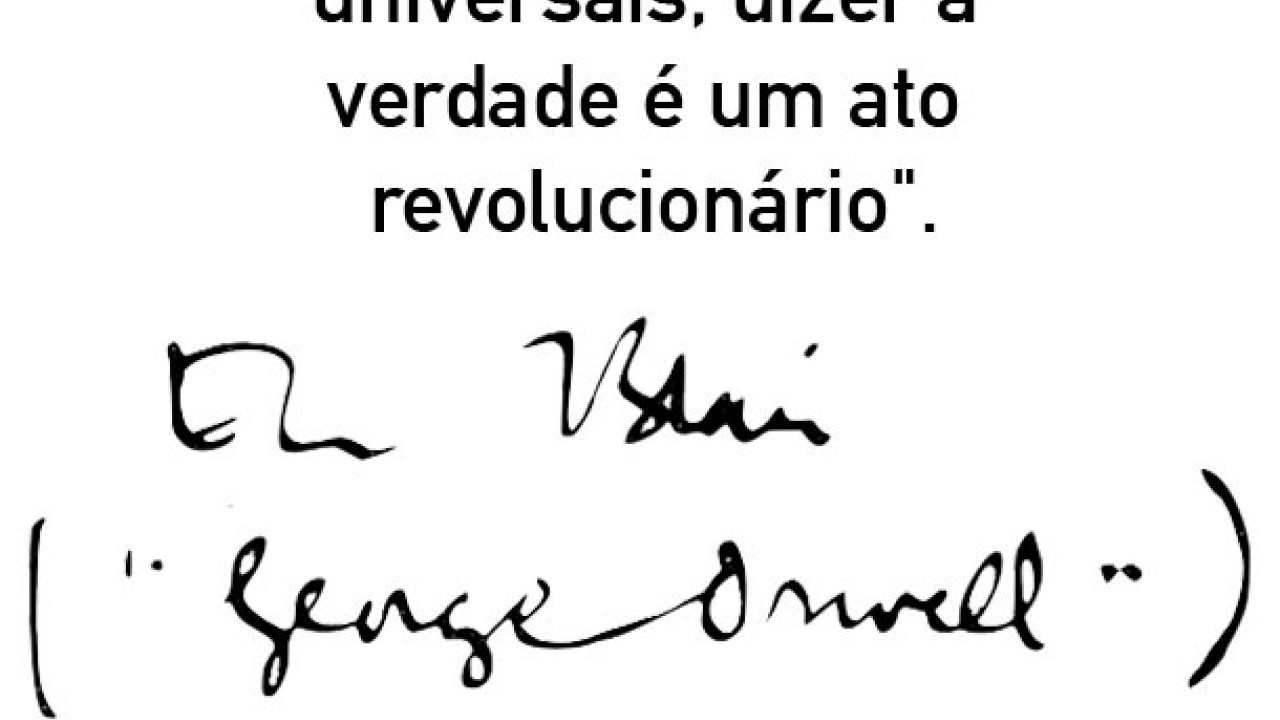 universais, dizer a
verdade é um ato
revolucionário".
Eric Blair
("George Orwell")